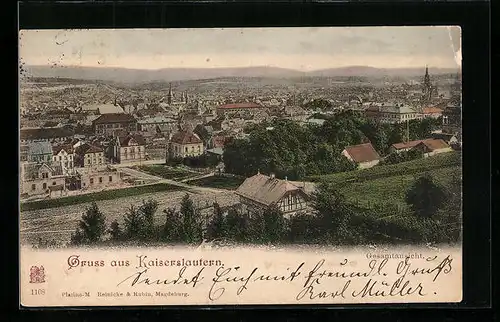 Gesamtansicht.
Gruss aus Kaiserslautern.
Sendet Euch mit freundl. Gruß
Karl Müller.
1108 Platino-M. Reinicke & Rubin, Magdeburg.